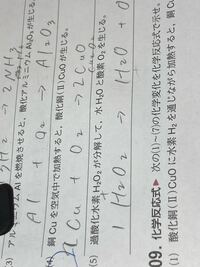 3H₂ → 2NH₃
(3) アルミニウム Al を燃焼させると、酸化アルミニウム Al₂O₃ が生じる。
Al + O₂ → Al₂O₃
(4) 銅 Cu を空気中で加熱すると、酸化銅(Ⅱ) CuO が生じる。
2Cu + O₂ → 2CuO
(5) 過酸化水素 H₂O₂ が分解して、水 H₂O と酸素 O₂ を生じる。
H₂O₂ → 1H₂O + O
09. 化学反応式▶ 次の(1)~(7)の化学変化を化学反応式で示せ。
(1) 酸化銅(Ⅱ) CuO に水素 H₂ を通じながら加熱すると、銅 C